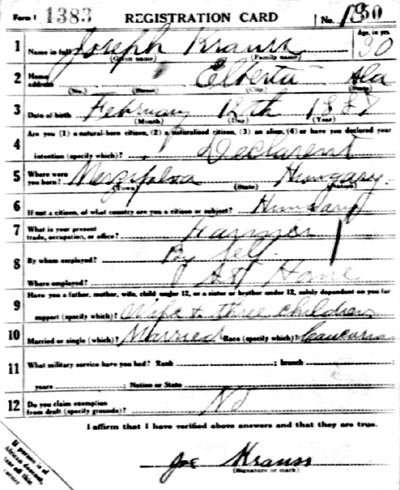 Form 1 1383 REGISTRATION CARD No. 130
1 Name in full Joseph Krauss Age, in yrs. 30
(Given name) (Family name)
2 Home address Elberta Ala
(No.) (Street) (City) (State)
3 Date of birth February 12th 1887
(Month) (Day) (Year)
4 Are you (1) a natural-born citizen, (2) a naturalized citizen, (3) an alien, (4) or have you declared your
intention (specify which)? Declarent
5 Where were you born? Hungary
(Town) (State) (Nation)
6 If not a citizen, of what country are you a citizen or subject? Hungary
7 What is your present trade, occupation, or office? Farmer
8 By whom employed? By Self
Where employed? At Home
9 Have you a father, mother, wife, child under 12, or a sister or brother under 12, solely dependent on you for
support (specify which)? Wife & three children
10 Married or single (which)? Married Race (specify which)? Caucasian
11 What military service have you had? Rank ; branch ;
years ; Nation or State
12 Do you claim exemption from draft (specify grounds)? No
I affirm that I have verified above answers and that they are true.
Joe Krauss
(Signature or mark)
If person is of
African descent,